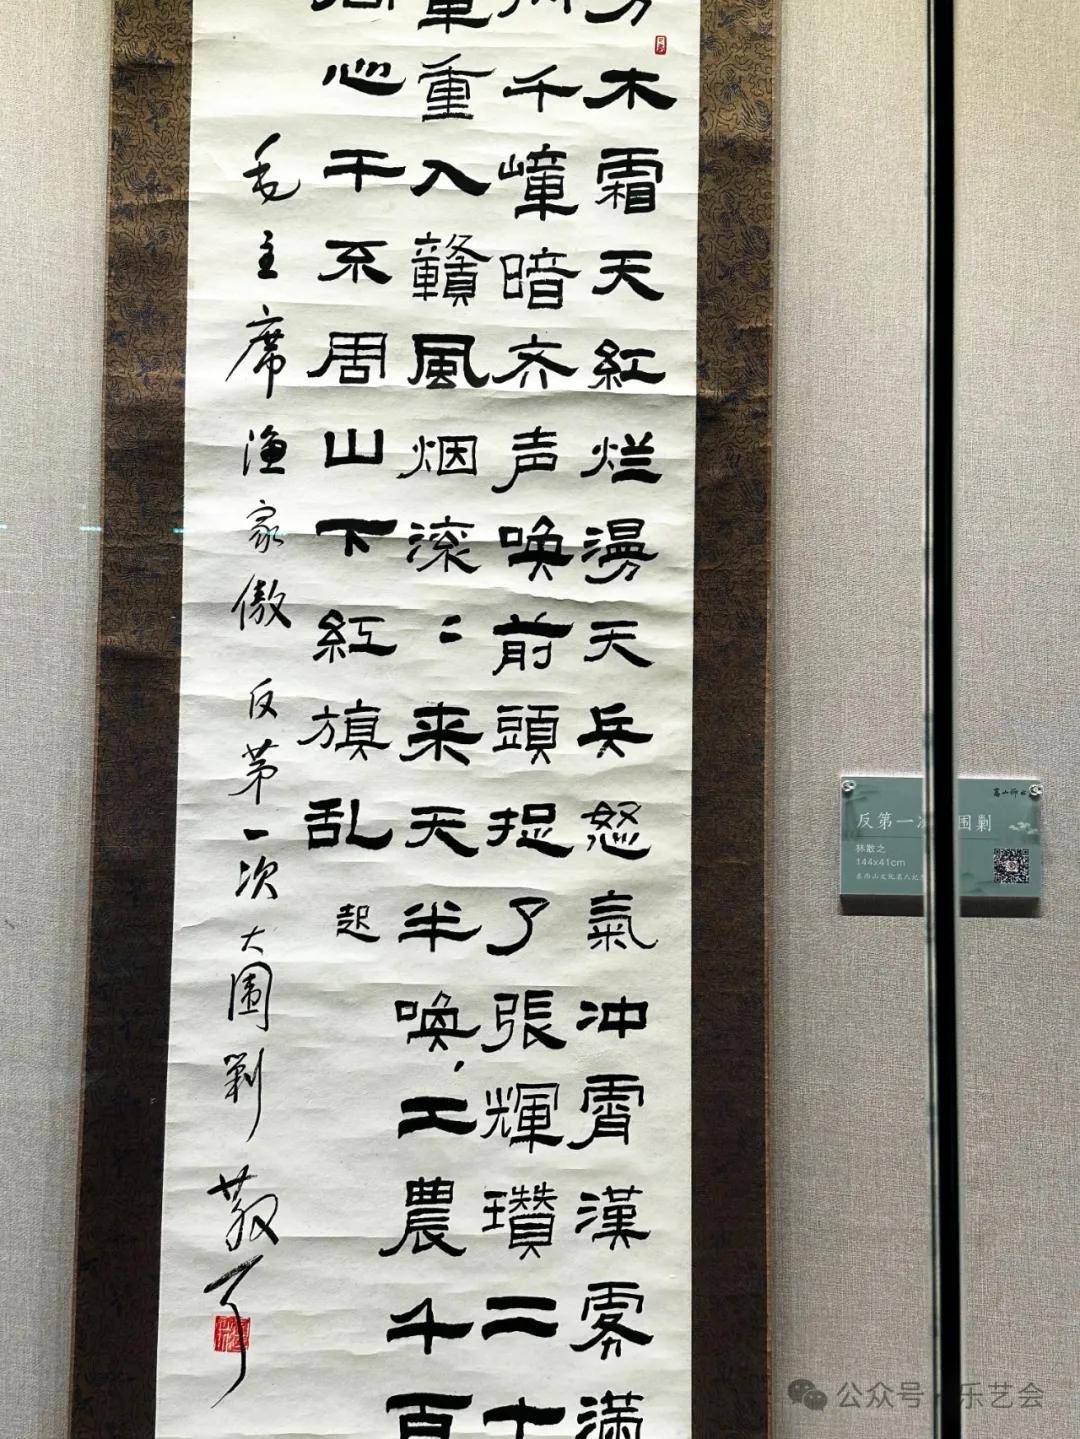 木霜天紅烂漫天兵怒氣冲霄漢雾满
千嶂暗齐声唤前頭捉了張輝瓚二十
軍重入贛風烟滚〻来天半唤，工農千百
心干不周山下紅旗乱 起
毛主席渔家傲 反苐一次大围剿 散耳
高山仰止
反第一 围剿
林散之
144x41cm
公众号 · 乐艺会